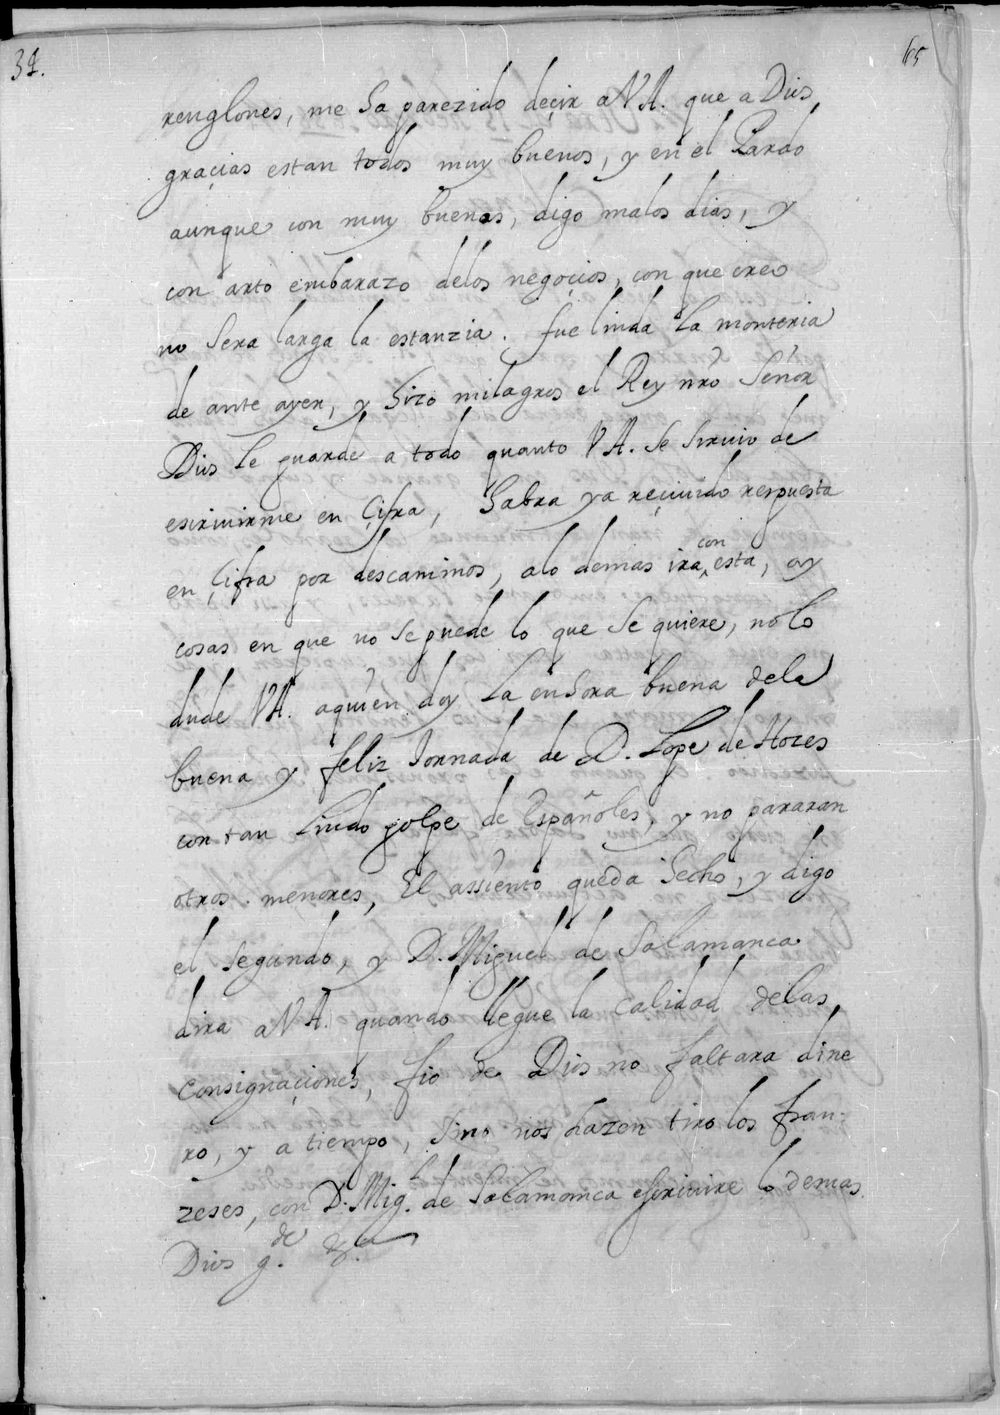 34.
65
renglones, me ha parezido deçir a V A. que a Dios
graçias estan todos muy buenos, y en el Pardo
aunque con muy buenos, digo malos dias, y
con arto embarazo de los negoçios, con que creo
no sera larga la estanzia. fue linda la monteria
de ante ayer, y hizo milagros el Rey nro Señor
Dios le guarde a todo quanto V A. se siruio de
escriuirme en Çifra, habra ya reçiuido respuesta
en Çifra por descaminos, a lo demas ira con esta, ay
cosas en que no se puede lo que se quiere, no lo
dude V A. a quien doy la enhora buena de la
buena y feliz Jornada de D. Lope de Hozes
con tan lindo golpe de Españoles, y no pararan
otros menores, El assiento queda hecho, y digo
el segundo, y D. Miguel de Salamanca
dira a V A. quando llegue la calidad de las
Consignaçiones, fio de Dios no faltara dine
ro, y a tiempo, sino nos hazen tiro los fran-
zeses, con D. Mig.l de Salamanca escriuire lo demas.
Dios g.de &.a